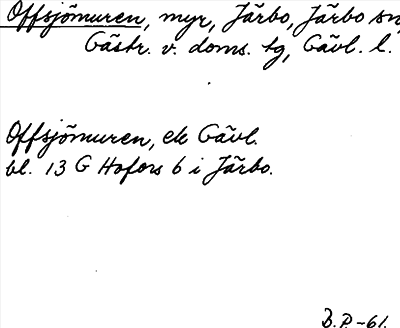 Offsjömuren, myr, Järbo, Järbo sn,
Gästr. v. doms. tg, Gävl. l.
Offsjömuren, ek Gävl.
bl. 13 G Hofors 6 i Järbo.
B.P.-61.